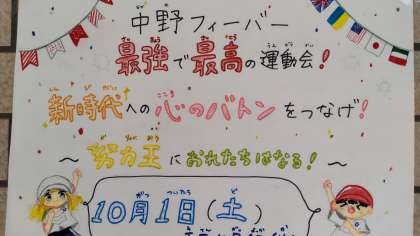 中野フィーバー
最強で最高の運動会!
新時代への心のバトンをつなげ!
～努力王におれたちはなる!～
10月1日(土)